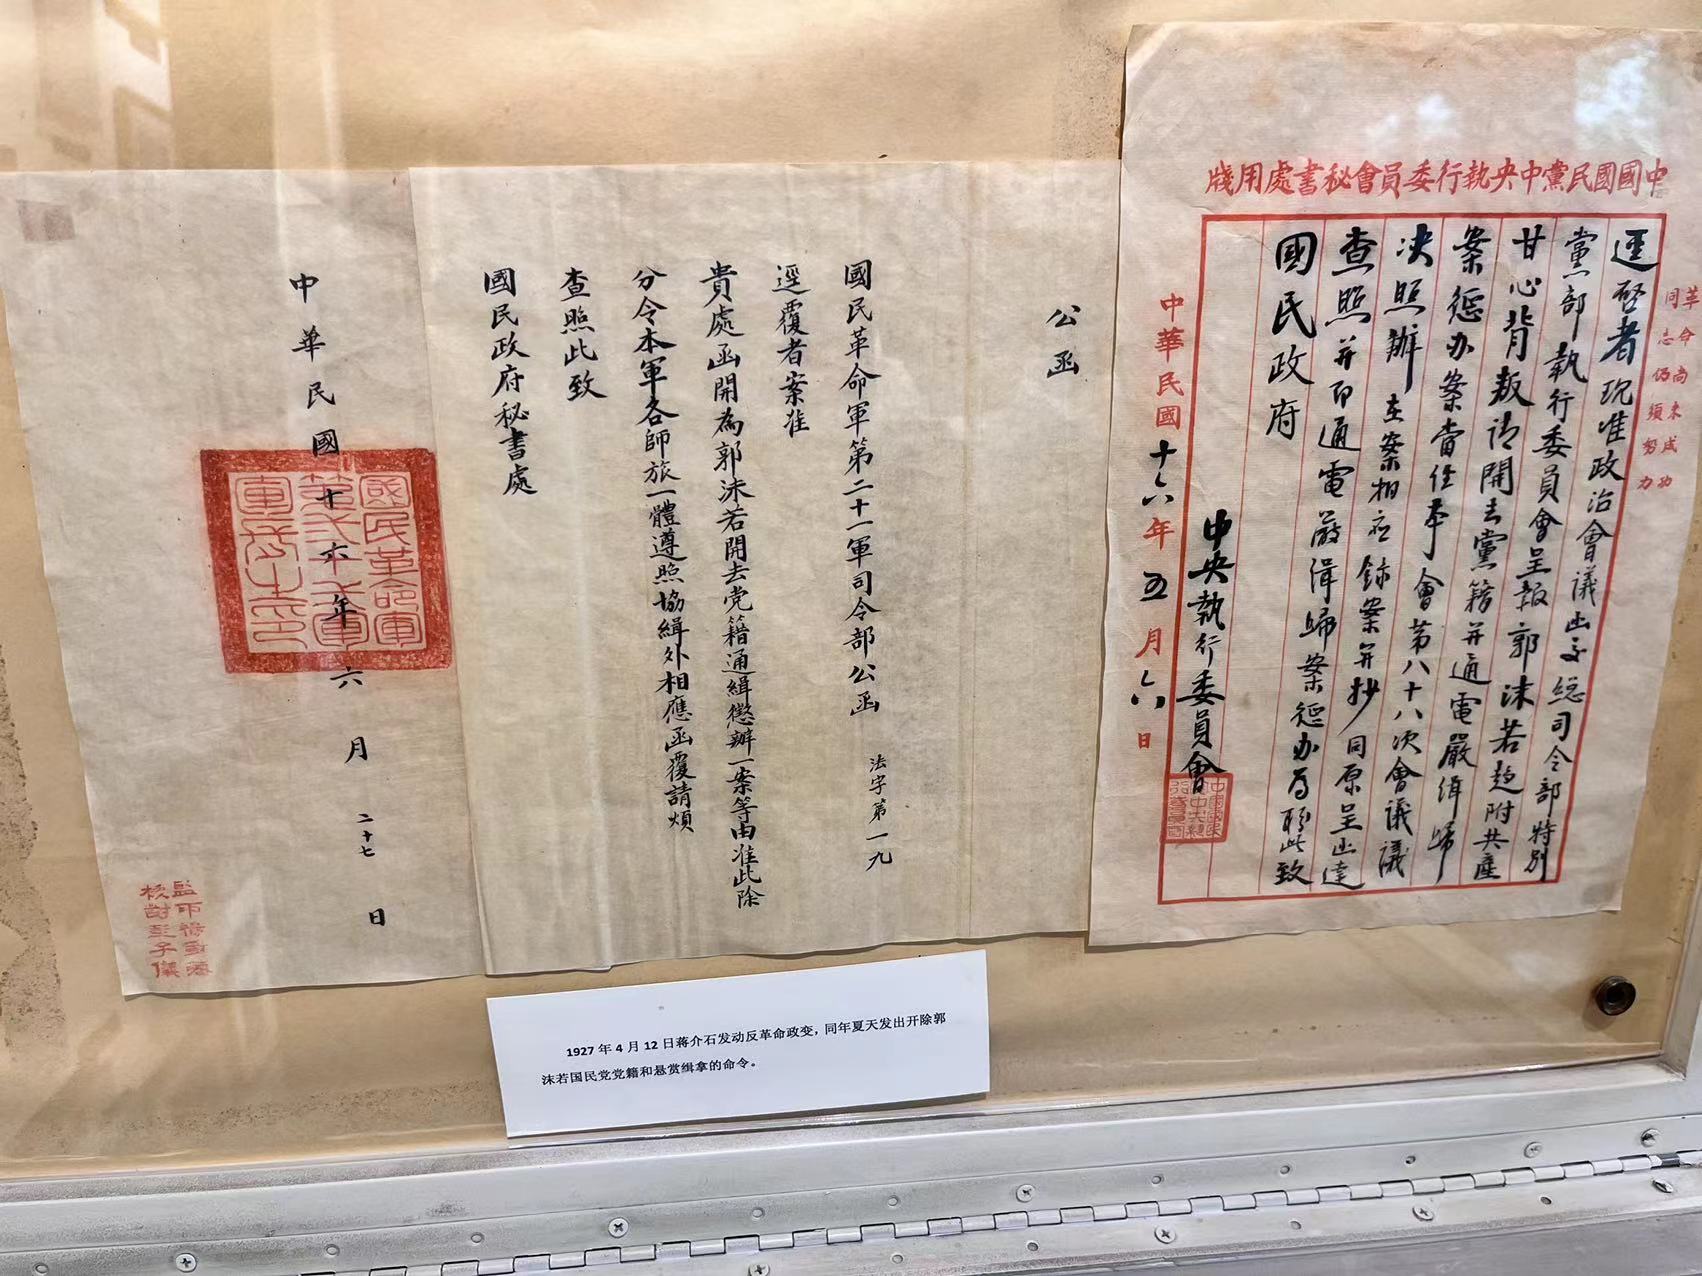 中國國民黨中央執行委員會秘書處用牋
革命尚未成功
同志仍須努力
逕啓者現准政治會議函交總司令部特別
黨部執行委員會呈報郭沫若趋附共產
甘心背叛請開去黨籍并通電嚴緝歸
案懲办案當經本會第八十八次會議議
决照辦在案相应錄案并抄同原呈函達
查照并即通電嚴緝歸案懲办為荷此致
國民政府
中央執行委員會
中華民國十六年五月六日
公函
國民革命軍第二十一軍司令部公函 法字第一九
逕覆者案准
貴處函開為郭沫若開去党籍通緝懲辦一案等由准此除
分令本軍各師旅一體遵照協緝外相應函覆請煩
查照此致
國民政府秘書處
中華民國十六年六月二十七日
國民革命軍
第二十一軍
軍長之印
1927年4月12日蒋介石发动反革命政变，同年夏天发出开除郭
沫若国民党党籍和悬赏缉拿的命令。